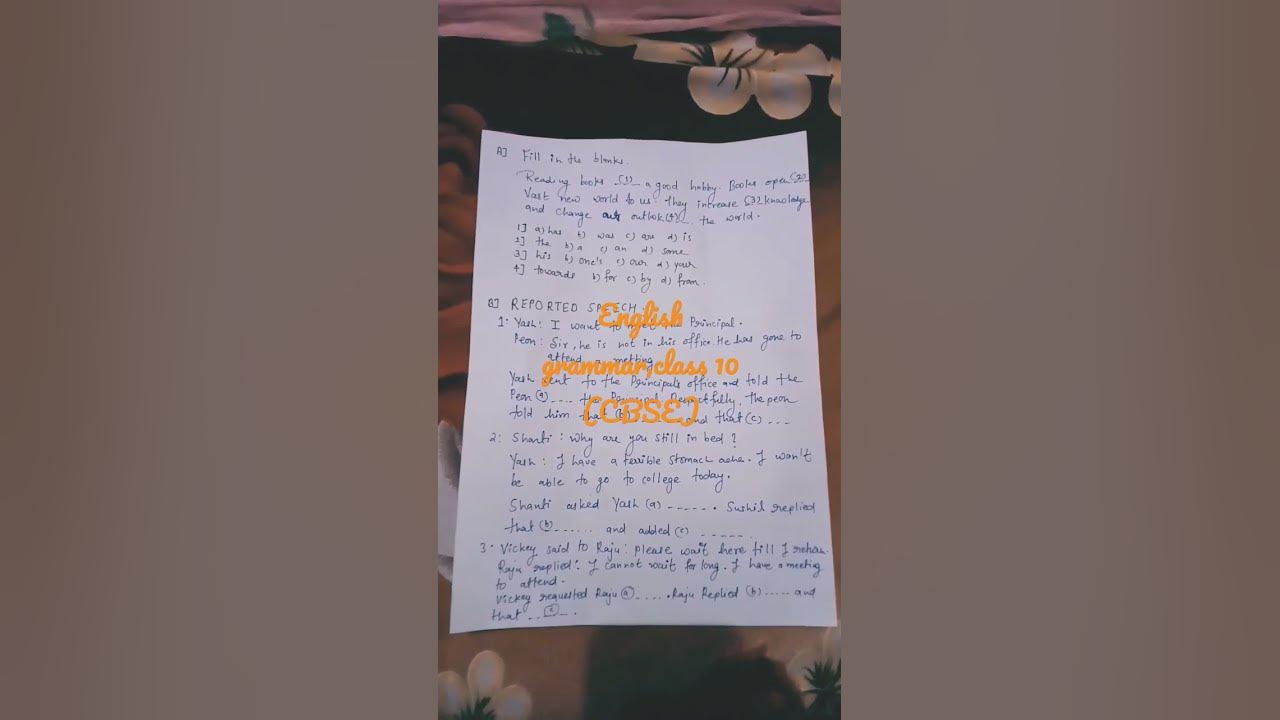 A] Fill in the blanks.
Reading books (1) a good hobby. Books open (2)
Vast new world to us. They increase (3) knowledge
and change our outlok (4) the world.
1] a) has b) was c) are d) is
2] the b) a c) an d) some
3] his b) one's c) our d) your
4] towards b) for c) by d) from.
B] REPORTED SPEECH
1. Yash: I want to the Principal.
Peon: Sir, he is not in his office. He has gone to
attend a metting
Yash went to the Principal's office and told the
Peon (a) .... the Principal Respectfully, the peon
told him that (b) and that (c) ---
2: Shanti: Why are you still in bed?
Yash: I have a terrible stomach ache. I won't
be able to go to college today.
Shanti asked Yash (a) -----. Sushil replied
that (b) ------ and added (c) -----.
3. Vickey said to Raju: please wait here till I return.
Raju replied: I cannot wait for long. I have a meeting
to attend.
Vickey requested Raju (a) ..... Raju Replied (b) ----- and
that (c)
English
grammar,class 10
(CBSE)